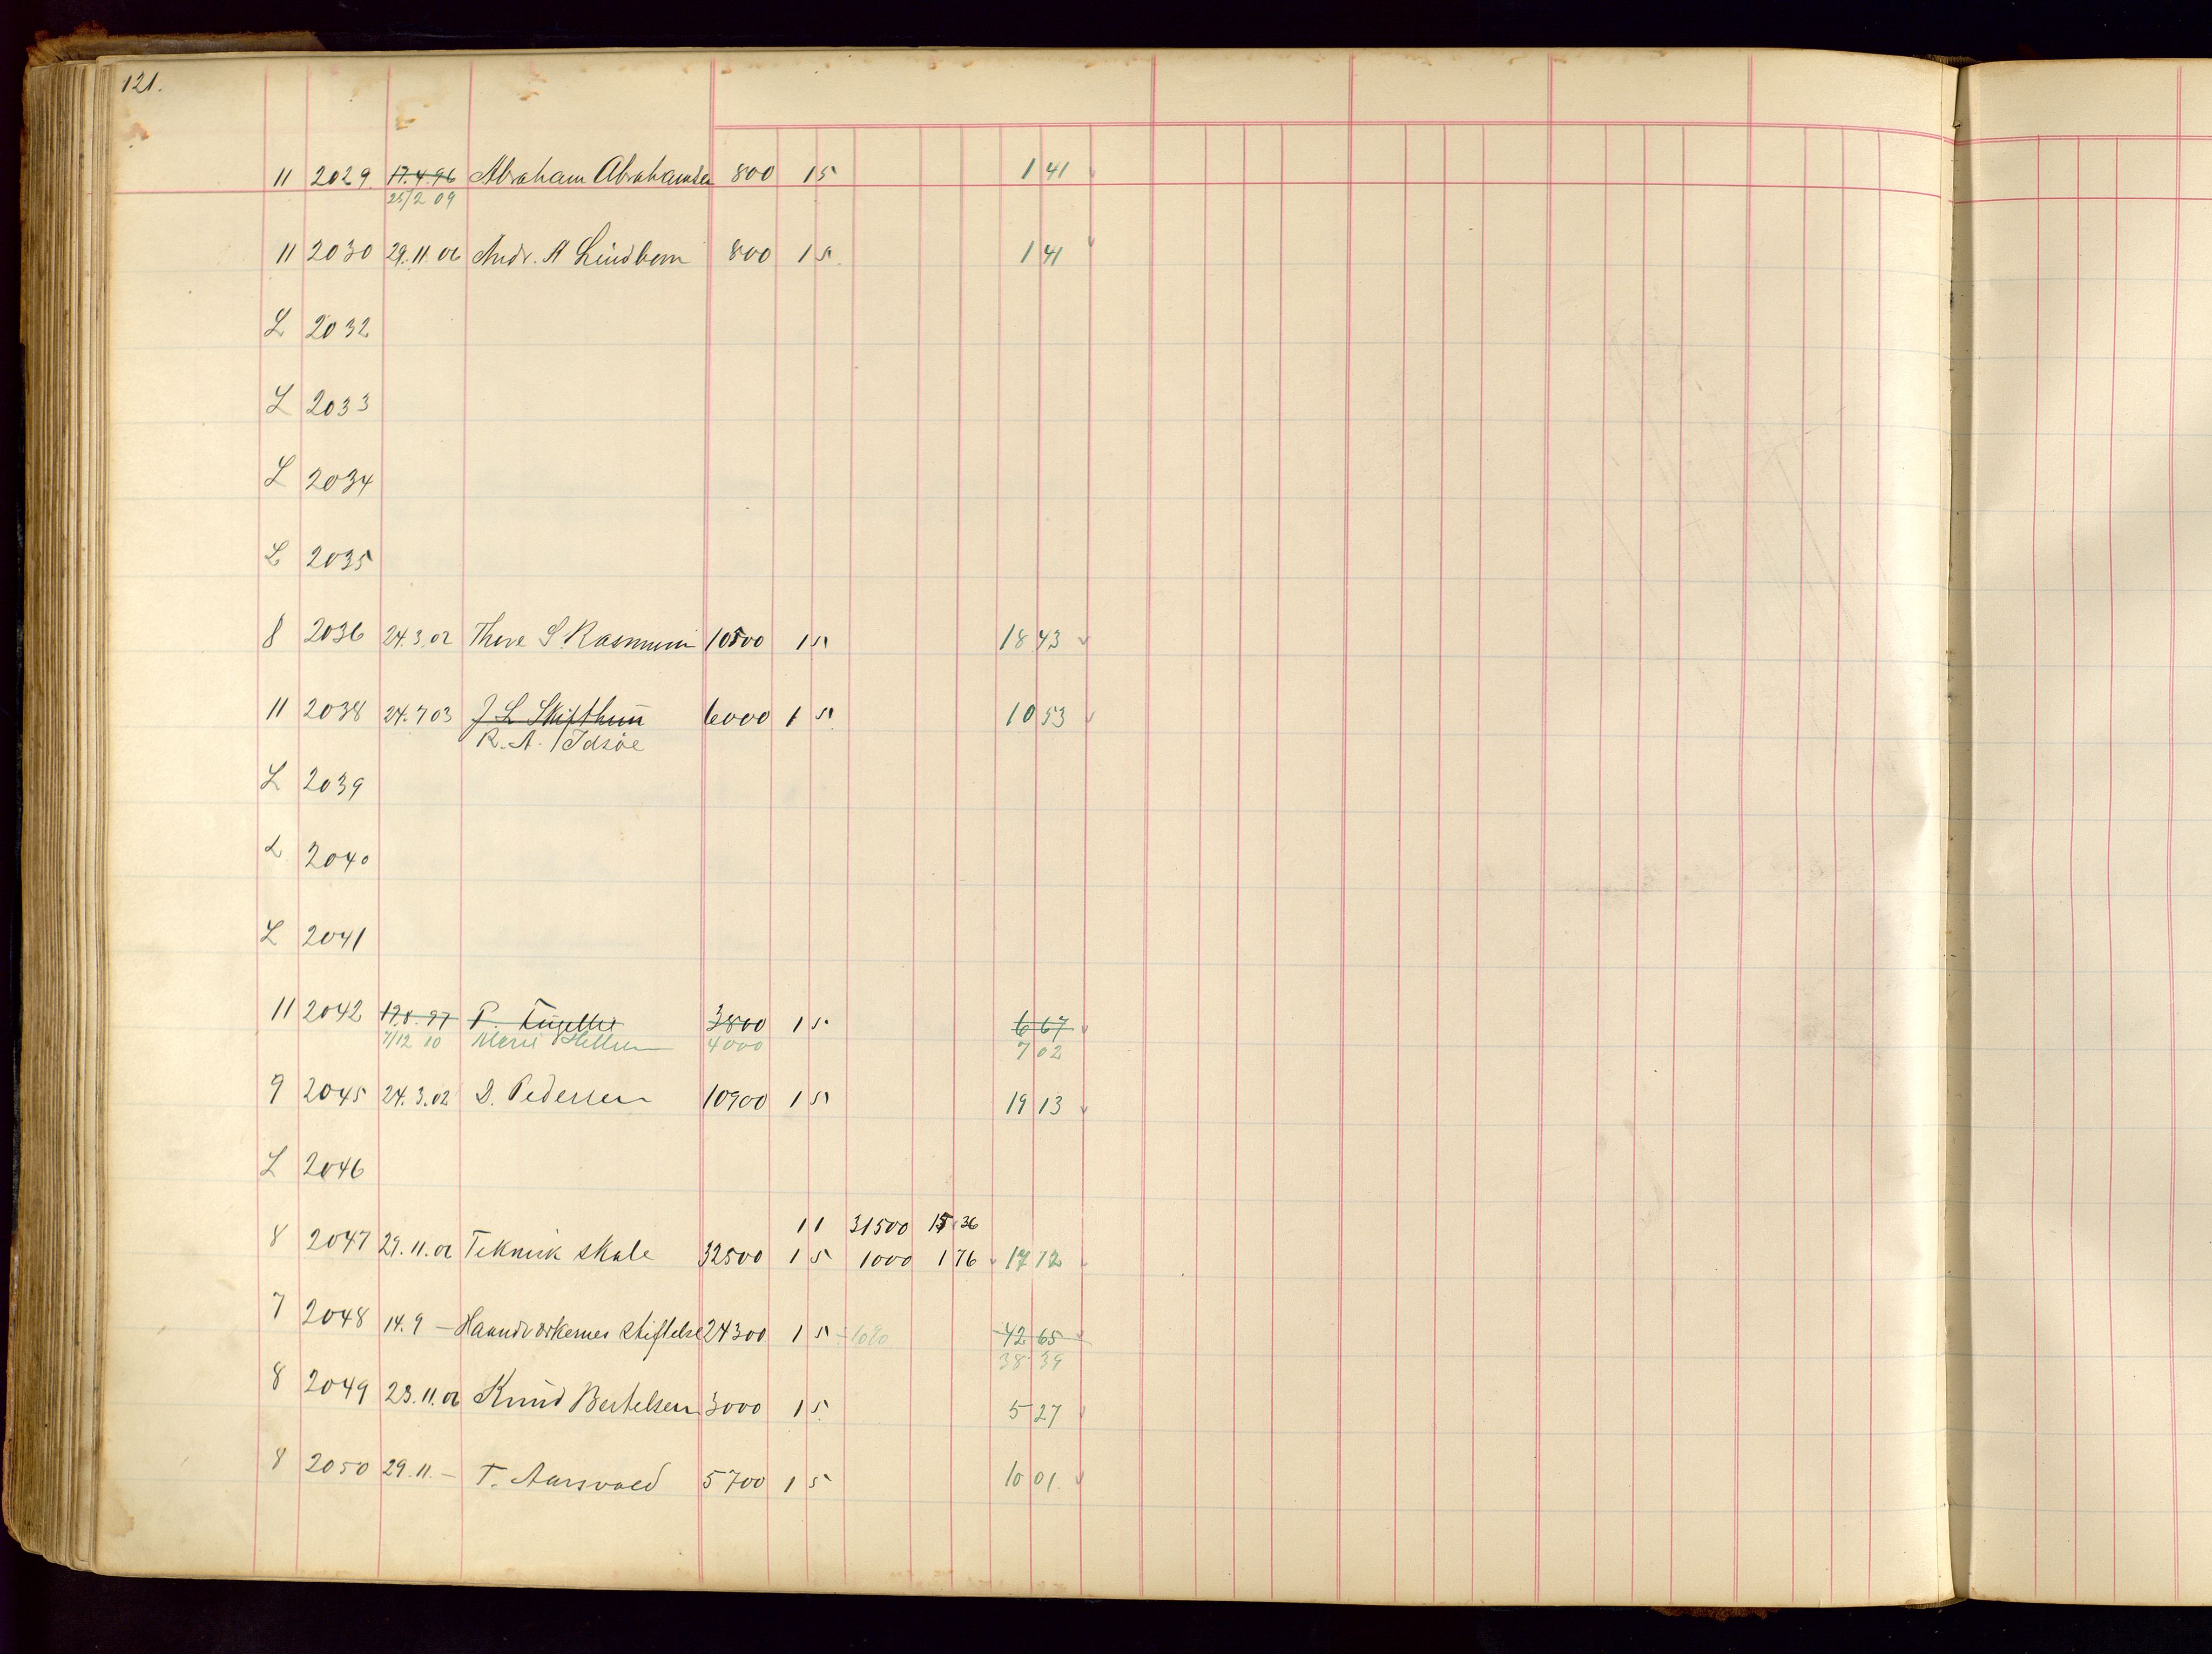 121.
11 2029. 17.4.96 Abraham Abrahamsen 800 1 5 1 41
25/2 09
11 2030 29.11.02 Andr. A Lindbom 800 1 5 1 41
L 2032
L 2033
L 2034
L 2035
8 2036 24.3.02 Thore S. Rasmussen 10500 1 5 18 43
11 2038 24.7 03 J L Skifthun 6000 1 5 10 53
R. A. Idsöe
L 2039
L 2040
L 2041
11 2042 17.8.97 P. 3800 1 5 6 67
7/12 10 Marie 4000 7 02
9 2045 24.3.02 D. Pedersen 10900 1 5 19 13
L 2046
1 1 31500 15 36
8 2047 29.11.02 Teknisk skole 32500 1 5 1000 1 76 17 12
7 2048 14.9 — Haandværkernes Stiftelse 24300 1 5 -10% 42 65
38 39
8 2049 23.11.02 Knud Bertelsen 3000 1 5 5 27
8 2050 29.11. — T. Aarsvold 5700 1 5 10 01